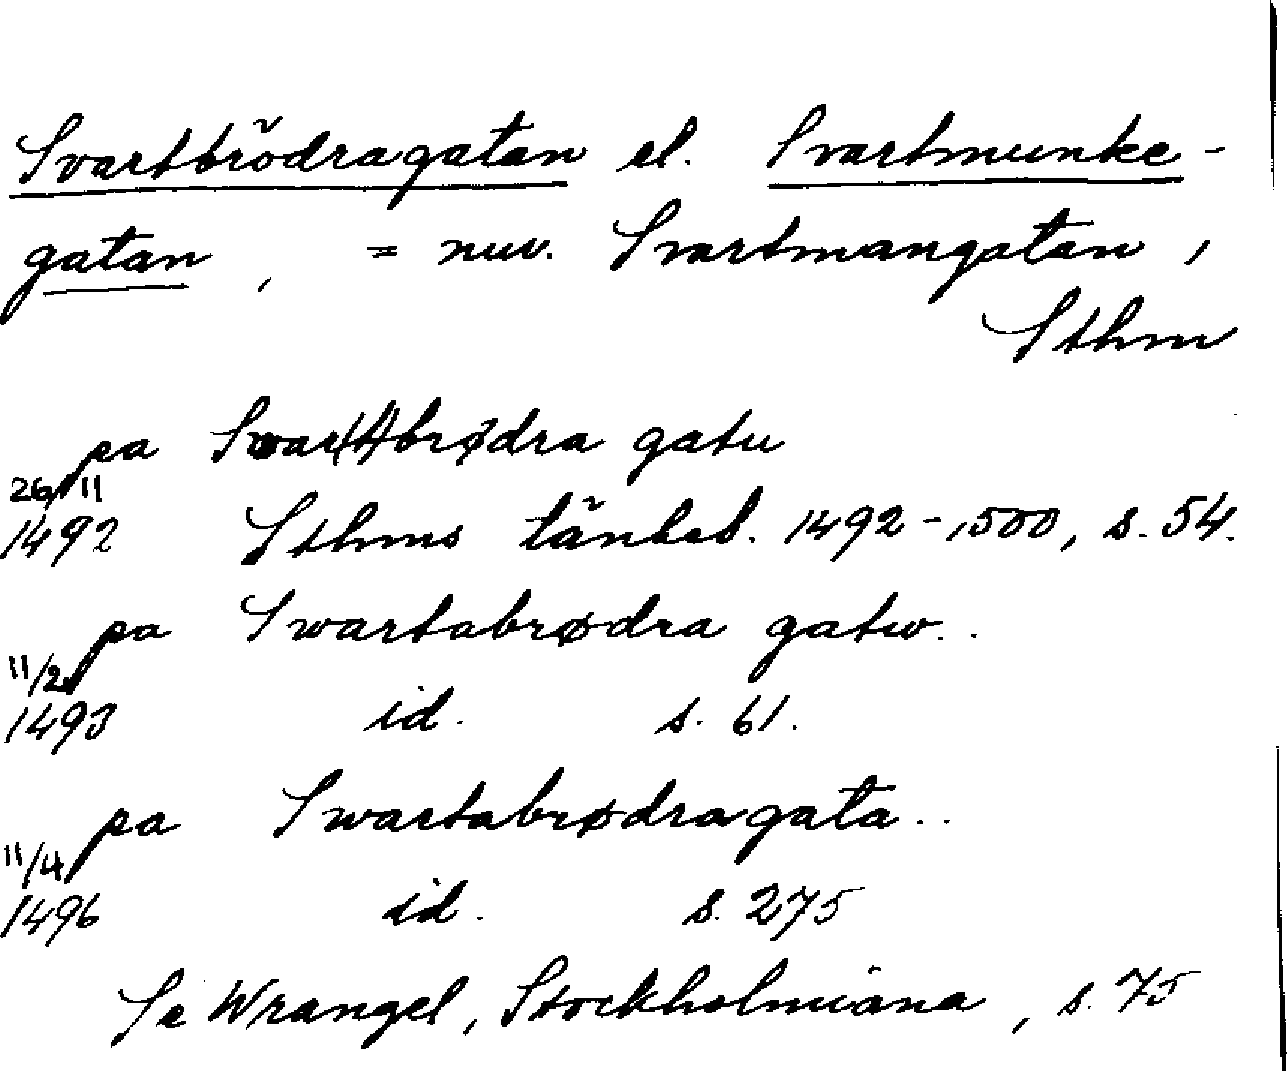 Svartbrödragatan el. Svartmunke-
gatan, = nuv. Svartmangatan,
Sthm
pa Swar(t)brødra gatu
26/11
1492 Sthms tänkeb. 1492-1500, s. 54.
pa Swartabrødra gatw..
11/2
1493 id. s. 61.
pa Swartabrødragata..
11/4
1496 id. s. 275
Se Wrangel, Stockholmiana, s. 75